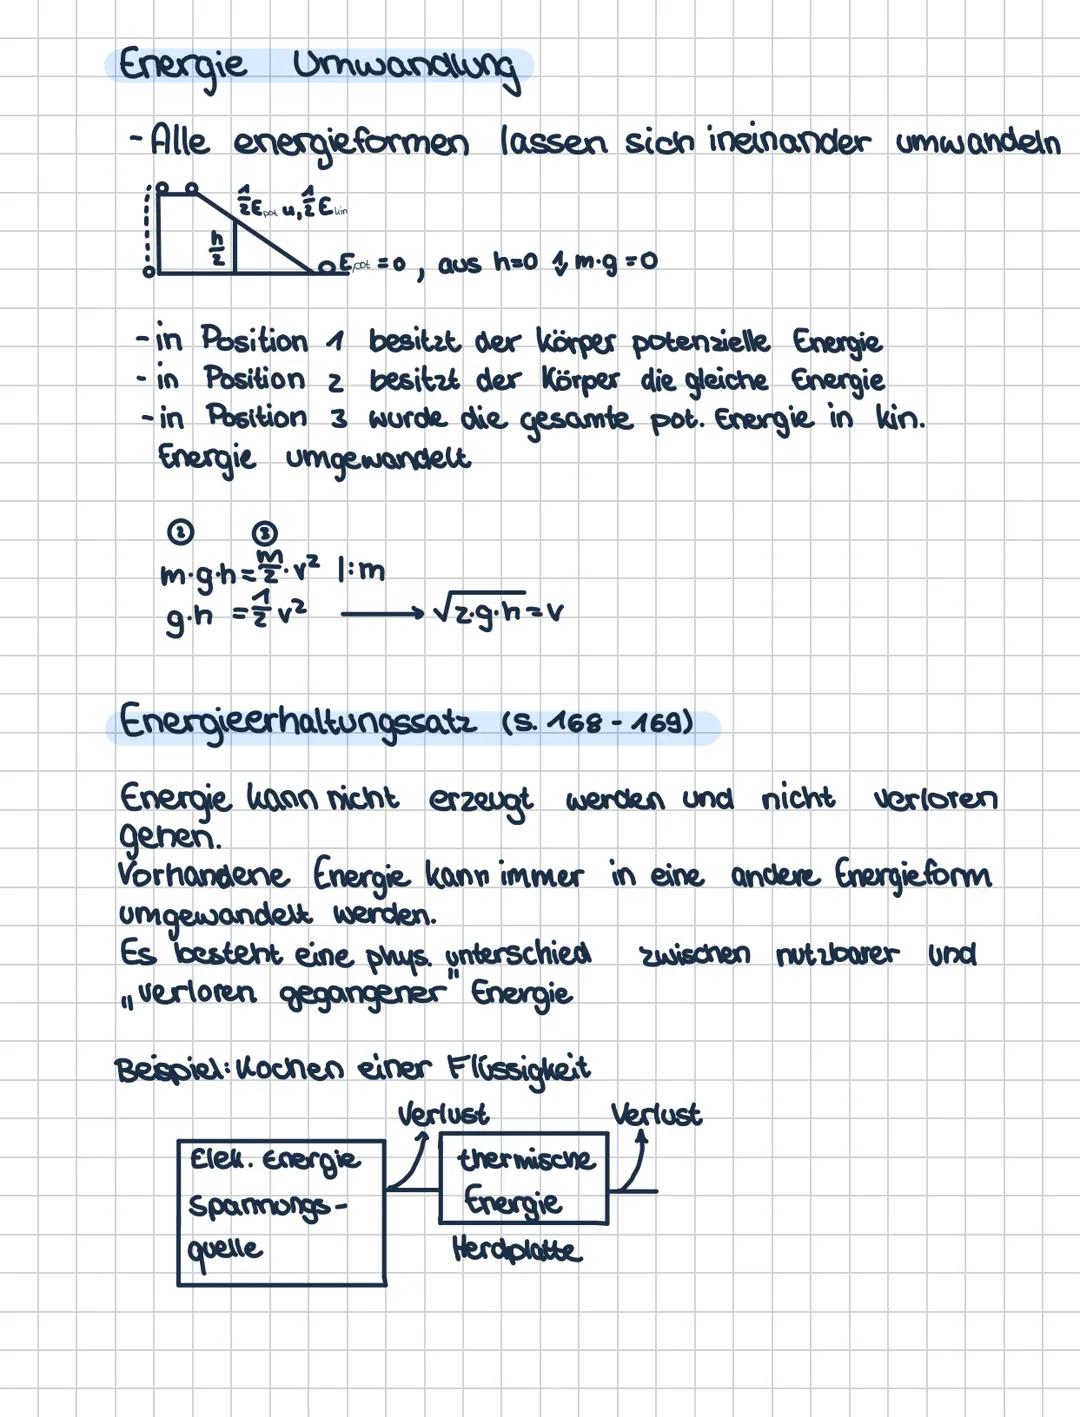 Energie Umwandlung
- Alle energieformen lassen sich ineinander umwandeln
1/2 Epot u, 1/2 Ekin
h/2
Epot = 0, aus h=0 m·g = 0
- in Position 1 besitzt der Körper potenzielle Energie
- in Position 2 besitzt der Körper die gleiche Energie
- in Position 3 wurde die gesamte pot. Energie in kin.
Energie umgewandelt
② ③
m·g·h = m/2 · v² |:m
g·h = 1/2 v² ⟶ √2·g·h = v
Energieerhaltungssatz (S. 168 - 169)
Energie kann nicht erzeugt werden und nicht verloren
gehen.
Vorhandene Energie kann immer in eine andere Energieform
umgewandelt werden.
Es besteht eine phys. unterschied zwischen nutzbarer und
„verloren gegangener" Energie
Beispiel: Kochen einer Flüssigkeit
Verlust Verlust
Elek. Energie
Spannungs-
quelle
thermische
Energie
Herdplatte